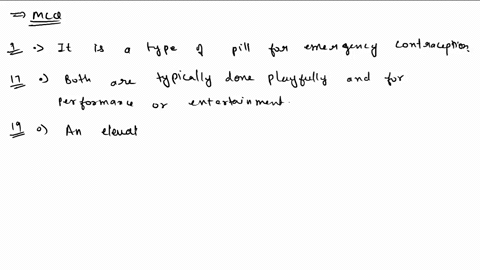 ⇒ MCQ
9 .) It is a type of pill for emergency contraception.
17 .) Both are typically done playfully and for
performance or entertainment.
19 .) An elevat